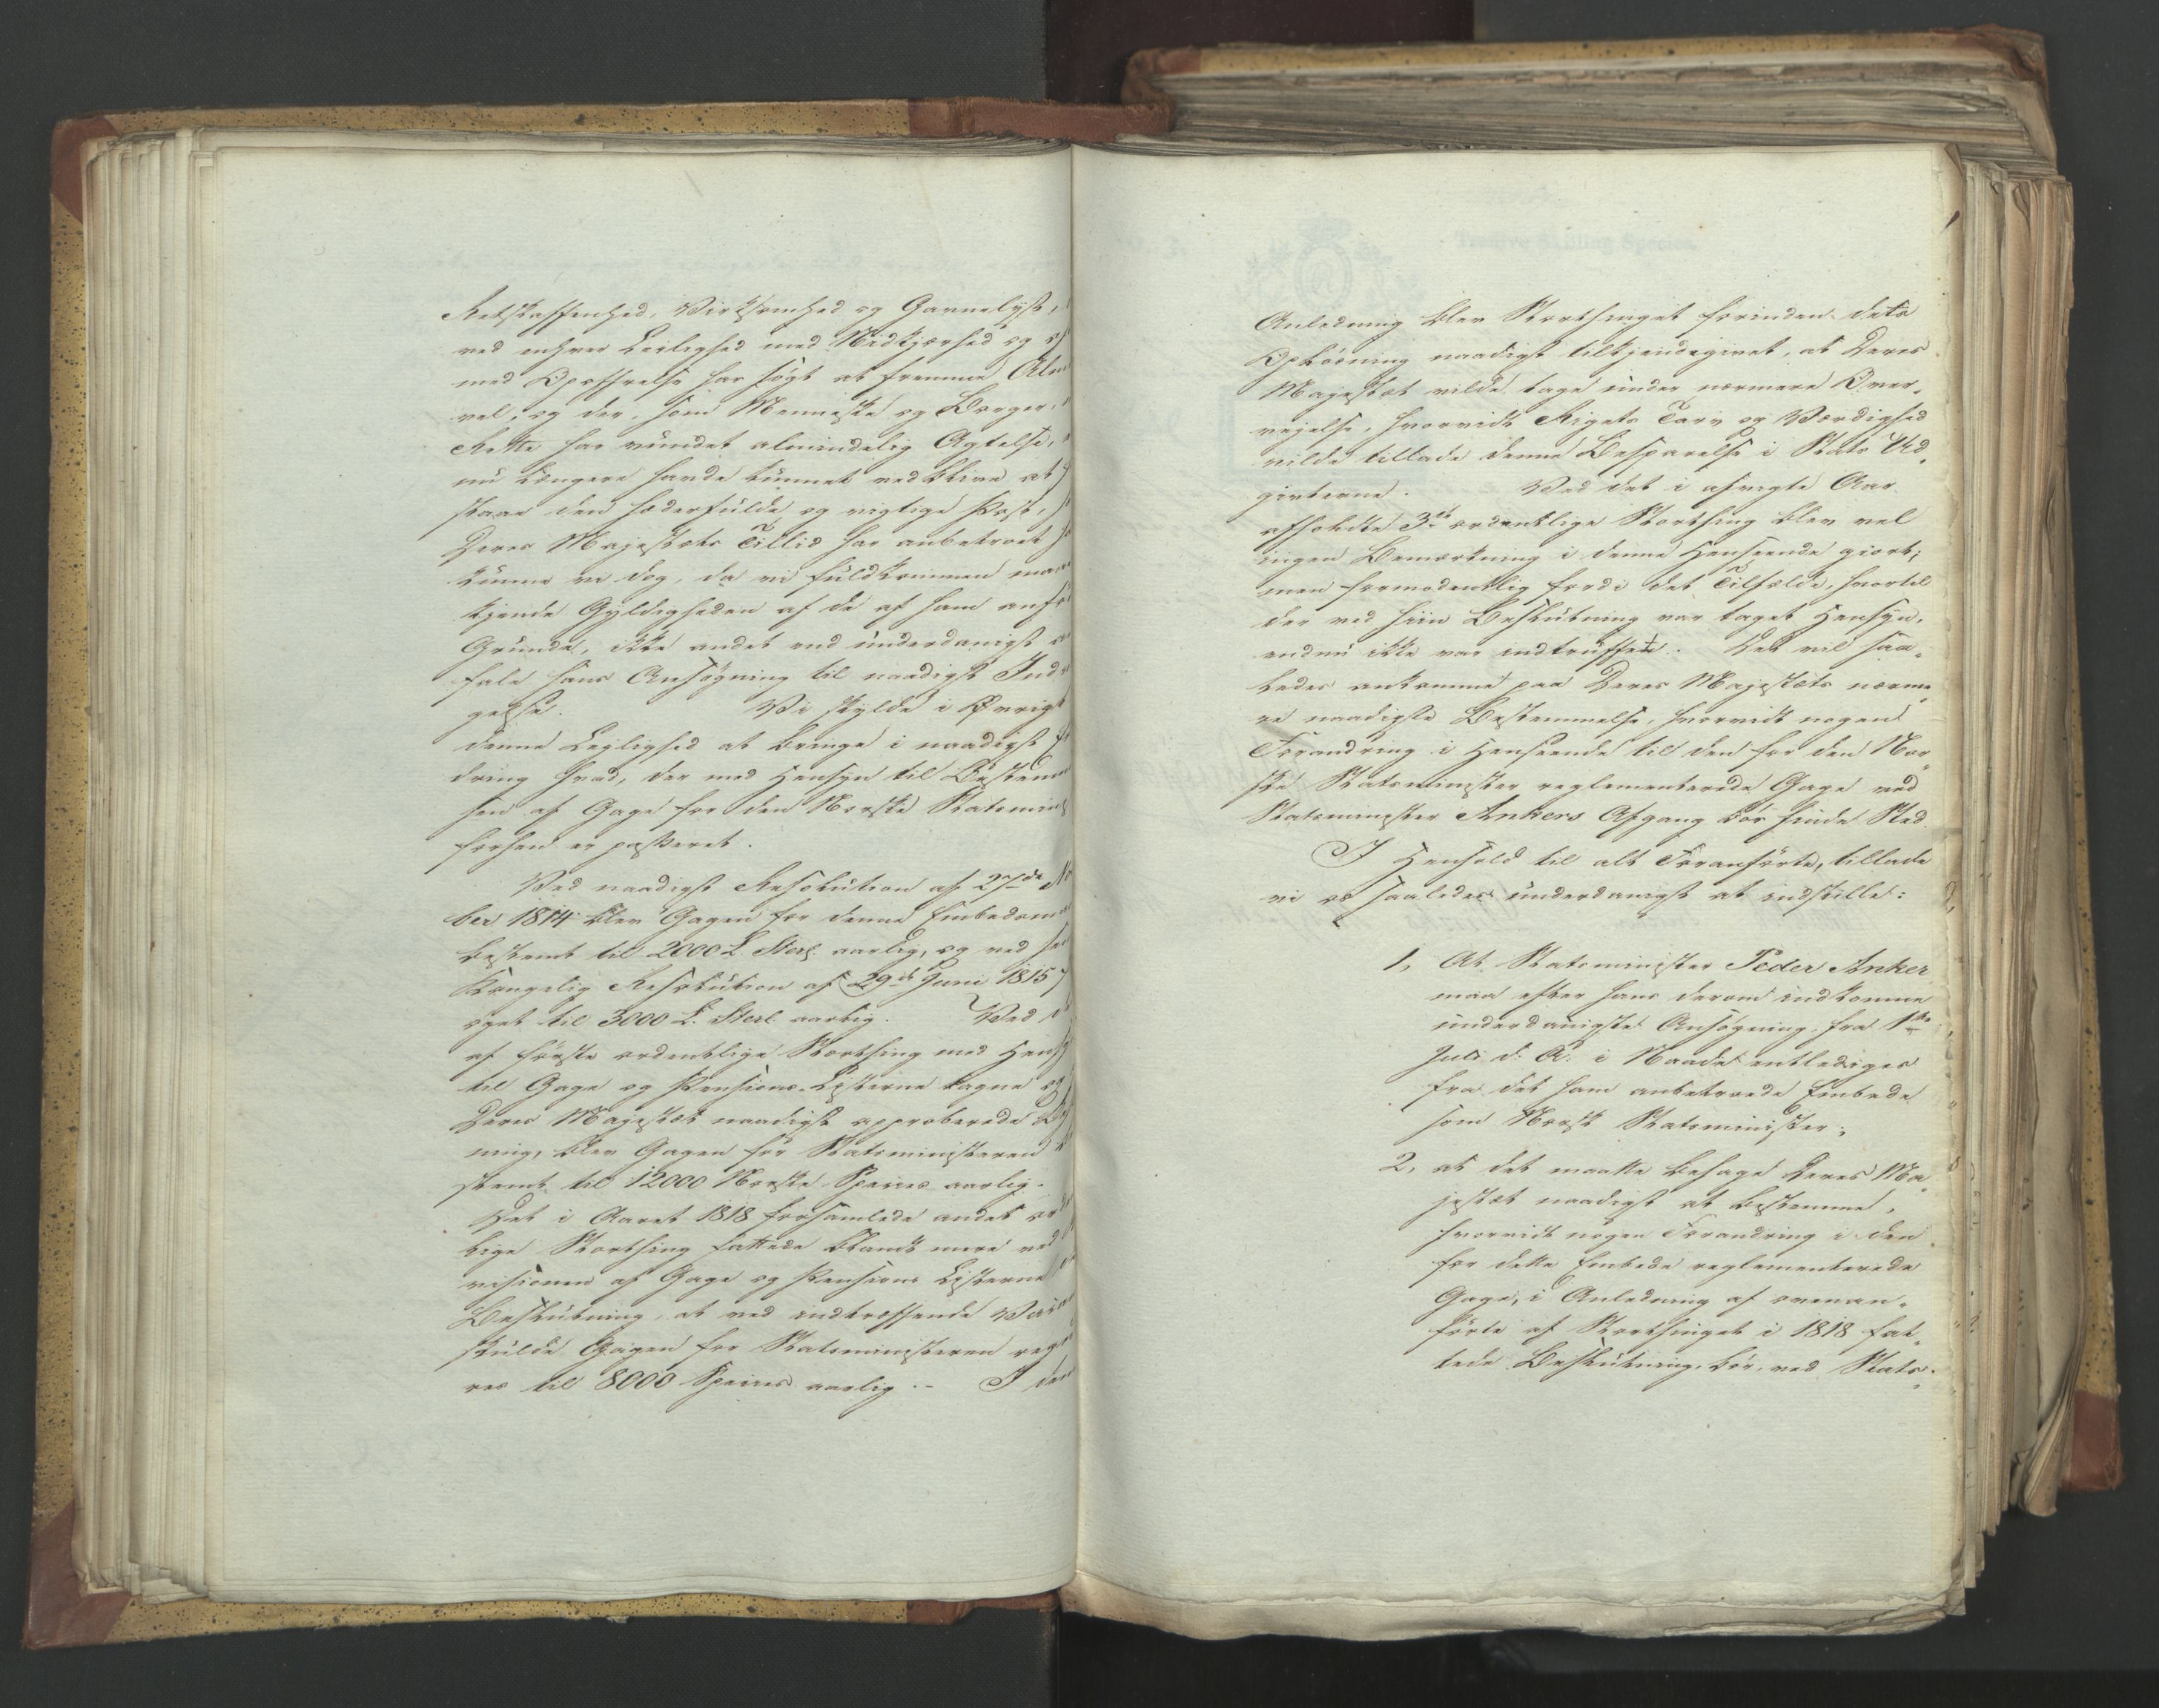 Retskaffenhed, Virksomhed og Gavnelyst,
ved enhver Leilighed med Nidkjærhed og
med Opoffrelse har søgt at fremme Alm
vel, og der, som Menneske og Borger,
Rette har vundet almindelig Agtelse,
nu længere havde kunnet vedblive at
staae den hæderfulde og vigtige Post,
Deres Majestæts Tillid har anbetroet
kunne vi dog, da vi fuldkommen maae
kjende Gyldigheden af de af ham anfö
Grunde, ikke andet end underdanigst
fale hans Ansøgning til naadigst Ind
gelse. Vi skylde i Øvrigt
denne Leilighed at bringe i naadigst
dring hvad, der med Hensyn til Bestem
sen af Gage for den Norske Statsmini
forhen er passeret.
Ved naadigst Resolution af 27de No
ber 1814 blev Gagen for denne Embedsm
bestemt til 2000 £. Sterl. aarlig, og ved
Kongelig Resolution af 29de Juni 1815
øget til 3000 £. Sterl. aarlig. Ved
af første ordentlige Storthing med Hens
til Gage og Pensions-Listerne tagne og
Deres Majestæt naadigst approberede Be
ning, blev Gagen for Statsministeren
stemt til 12000 Norske Species aarlig.
Det i Aaret 1818 forsamlede andet or
lige Storthing fattede blandt mere ved
visionen af Gage og Pensions Listerne
Beslutning, at ved indtræffende Vac
skulde Gagen for Statsministeren reg
res til 8000 Species aarlig. - I den
Anledning blev Storthinget forinden dets
Opløsning naadigst tilkjendegivet, at Deres
Majestæt vilde tage under nærmere Over-
vejelse, hvorvidt Rigets Tarv og Værdighed
vilde tillade denne Besparelse i Stats Ud-
givterne. Ved det i afvigte Aar
afholdte 3die ordentlige Storthing blev vel
ingen Bemærkning i denne Henseende giort;
men formodentlig fordi det Tilfælde, hvortil
der ved hiin Beslutning var taget Hensyn,
endnu ikke var indtruffet. Det vil saa-
ledes ankomme paa Deres Majestæts nærme-
re naadigste Bestemmelse, hvorvidt nogen
Forandring i Henseende til den for den Nor-
ske Statsminister reglementerede Gage ved
Statsminister Ankers Afgang bør finde Sted.
I Henhold til alt Foranførte, tillade
vi os saaledes underdanigst at indstille:
1, At Statsminister Peder Anker
maa efter hans derom indkomne
underdanigste Ansøgning fra 1ste
Juli d: A: i Naade entlediges
fra det ham anbetroede Embede
som Norsk Statsminister;
2, at det maatte behage Deres Ma-
jestæt naadigst at bestemme,
hvorvidt nogen Forandring i den
for dette Embede reglementerede
Gage, i Anledning af ovenan-
førte af Storthinget i 1818 fat-
tede Beslutning, bør, ved Stats-